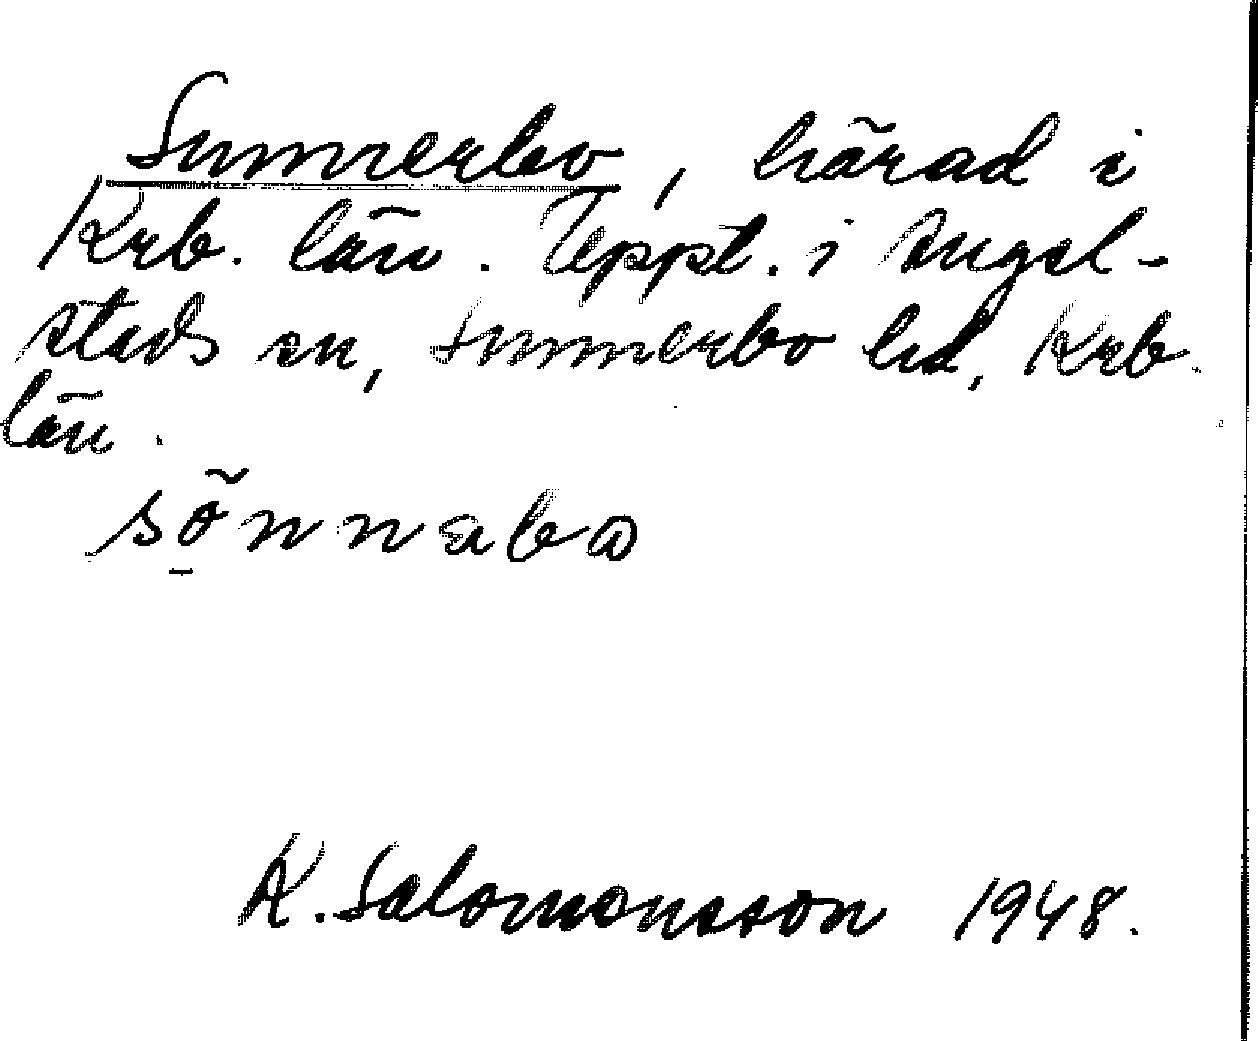 Sunnerbo, härad i
Krb. län. Uppt. i Angel-
stads sn, Sunnerbo hd, Krb.
län.
sõ̱nnabɷ
K. Salomonsson 1948.